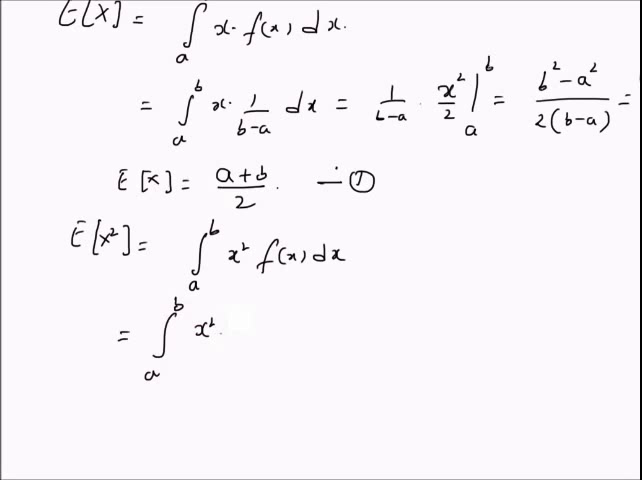 E[X] = ∫ₐ x. f(x) dx.
= ∫ₐᵇ x. 1/(b-a) dx = 1/(b-a) . x²/2 |ₐᵇ = (b²-a²)/(2(b-a)) =
E[x] = (a+b)/2. — ①
E[x²] = ∫ₐᵇ x² f(x) dx
= ∫ₐᵇ x².